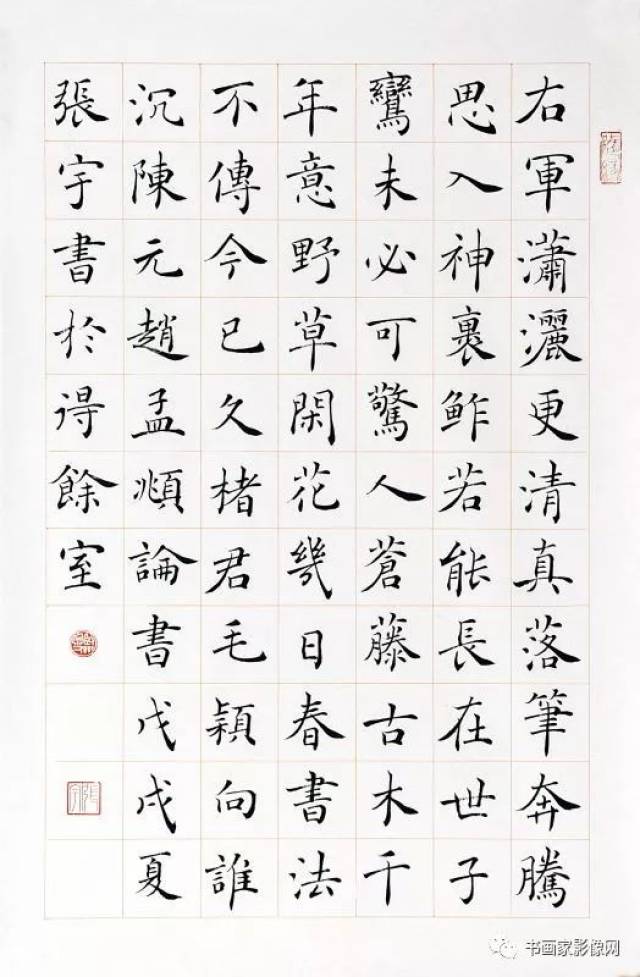 右軍瀟灑更清真落筆奔騰
思入神裹鮓若能長在世子
鸞未必可驚人蒼藤古木千
年意野草閑花幾日春書法
不傳今已久楮君毛穎向誰
沉陳元趙孟頫論書戊戌夏
張宇書於得餘室
书画家影像网